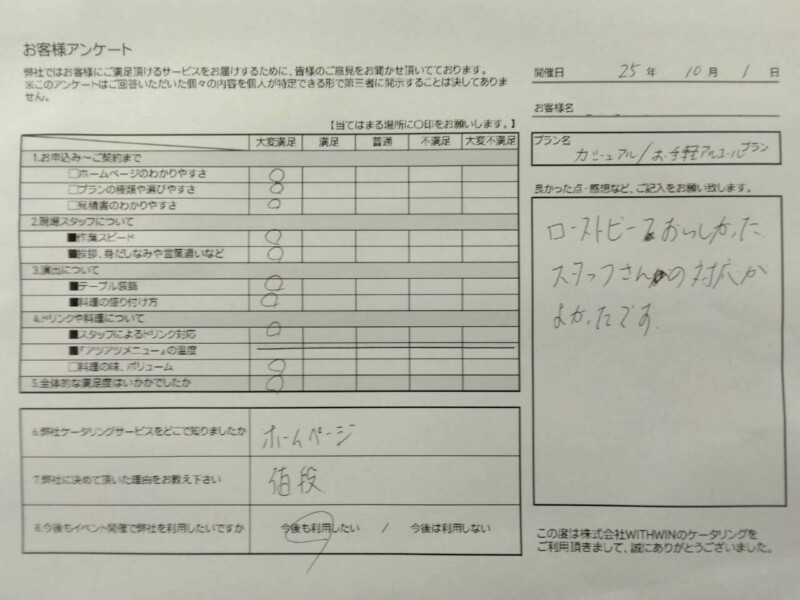 お客様アンケート
弊社ではお客様にご満足頂けるサービスをお届けするために、皆様のご意見をお聞かせ頂いております。
※このアンケートはご回答いただいた個々の内容を個人が特定できる形で第三者に開示することは決してありま
せん。
【当てはまる場所に〇印をお願いします。】
大変満足 満足 普通 不満足 大変不満足
1.お申込み～ご契約まで
□ホームページのわかりやすさ ○
□プランの種類や選びやすさ ○
□見積書のわかりやすさ ○
2.現場スタッフについて
■作業スピード ○
■挨拶、身だしなみや言葉遣いなど ○
3.演出について
■テーブル装飾 ○
■料理の盛り付け方 ○
4.ドリンクや料理について
■スタッフによるドリンク対応 ○
■『アツアツメニュー』の温度
□料理の味、ボリューム ○
5.全体的な満足度はいかがでしたか ○
6.弊社ケータリングサービスをどこで知りましたか ホームページ
7.弊社に決めて頂いた理由をお教え下さい 値段
8.今後もイベント開催で弊社を利用したいですか 今後も利用したい / 今後は利用しない
開催日 25年 10月 1日
お客様名
プラン名
カジュアル/お手軽アルコールプラン
良かった点・感想など、ご記入をお願い致します。
ローストビーフおいしかった
スタッフさんの対応が
よかったです。
この度は株式会社WITHWINのケータリングを
ご利用頂きまして、誠にありがとうございました。